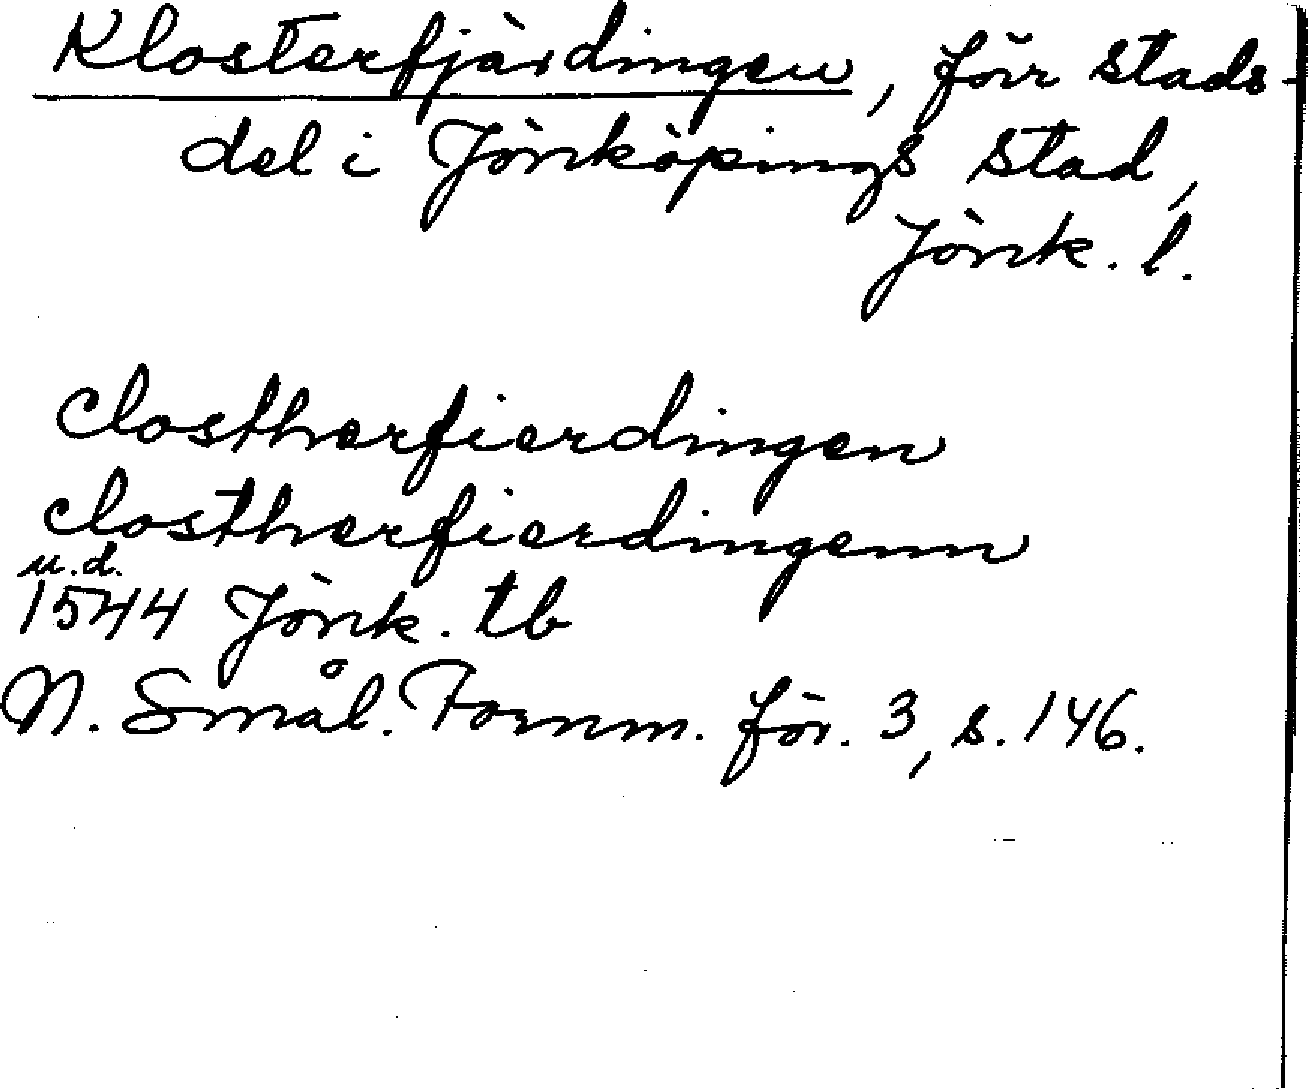 Klosterfjärdingen, förr stads-
del i Jönköpings stad,
Jönk. l.
Clostherfierdingen
Clostherfierdingenn
u.d.
1544 Jönk. tb
N. Smål. Fornm. för. 3, s. 146.